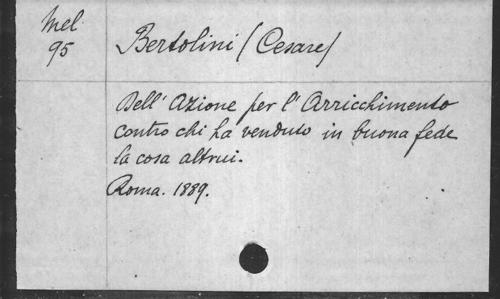 Mel
95
Bertolini (Cesare)
Dell' Azione per l' Arricchimento
contro chi ha venduto in buona fede
la cosa altrui.
Roma. 1889.